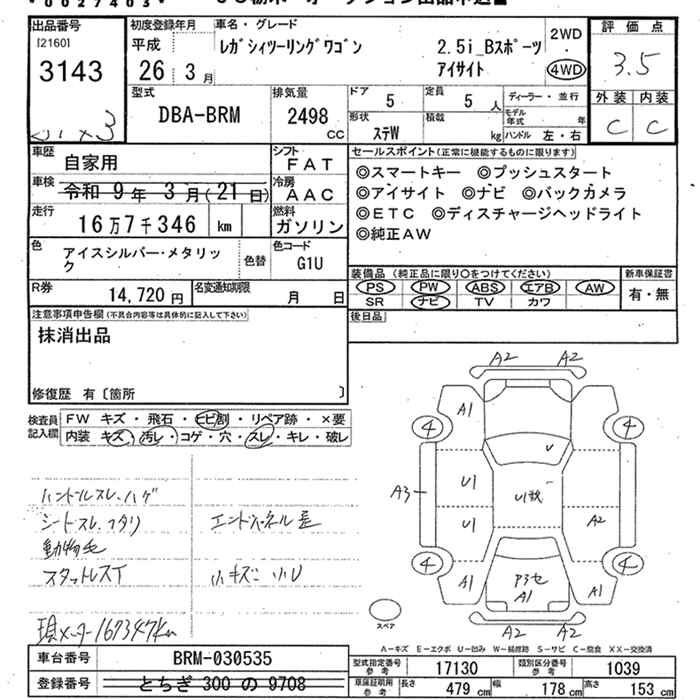 *0027403*
出品番号 初度登録年月 車名・グレード 評価点
[2160] 平成 レガシィツーリングワゴン 2.5i_Bスポーツ 2WD
3143 26年 3月 アイサイト 4WD 3.5
型式 排気量 ドア 5 定員 5人 ディーラー・並行 外装 内装
DBA-BRM 2498 cc 形状 ステW 積載 kg モデル年式 年 ハンドル 左・右 C C
車歴 自家用 シフト FAT セールスポイント(正常に機能するものに限ります)
車検 令和 9年 3月(21日) 冷房 AAC ◎スマートキー ◎プッシュスタート
走行 16万7千346 km 燃料 ガソリン ◎アイサイト ◎ナビ ◎バックカメラ
◎ETC ◎ディスチャージヘッドライト
◎純正AW
色 アイスシルバー・メタリック 色替 色コード G1U
装備品 (純正品に限り○をつけてください) 新車保証書
R券 14,720円 名変通知期限 月 日 PS PW ABS エアB AW 有・無
SR ナビ TV カワ
注意事項申告欄(不具合内容等は具体的に記入して下さい) 後日品
抹消出品
修復歴 有〔箇所 〕
検査員記入欄 FW キズ・飛石・ヒビ割・リペア跡・×要
内装 キズ・汚レ・コゲ・穴・スレ・キレ・破レ
A2 A2
A1
4 4
U1 U1獣
A3
U1 A2
4 4
A1 P3セ A1
A1
A2 A2
スペア
ハンドルスレ.ハゲ
シートスレ.コタリ エンドパネル歪
動物毛
スタットレスT 小キズ 小U
現メーター167347km
A-キズ E-エクボ U-凹み W-補修跡 S-サビ C-腐食 XX-交換済
車台番号 BRM-030535 型式指定番号 参考 17130 類別区分番号 参考 1039
登録番号 とちぎ 300 の 9708 車庫証明用 参考 長さ 479 cm 幅 178 cm 高さ 153 cm